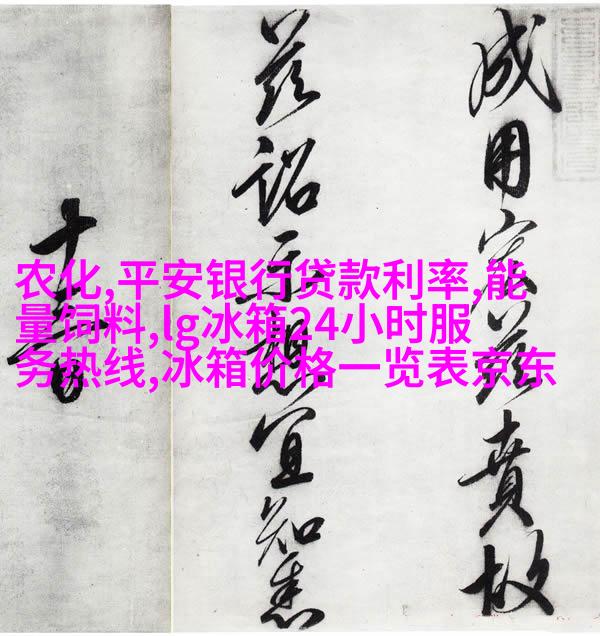 农化,平安银行贷款利率,能
量饲料,lg冰箱24小时服
务热线,冰箱价格一览表京东
成用宏茲賁故
茲詔示想宜知悉
十日